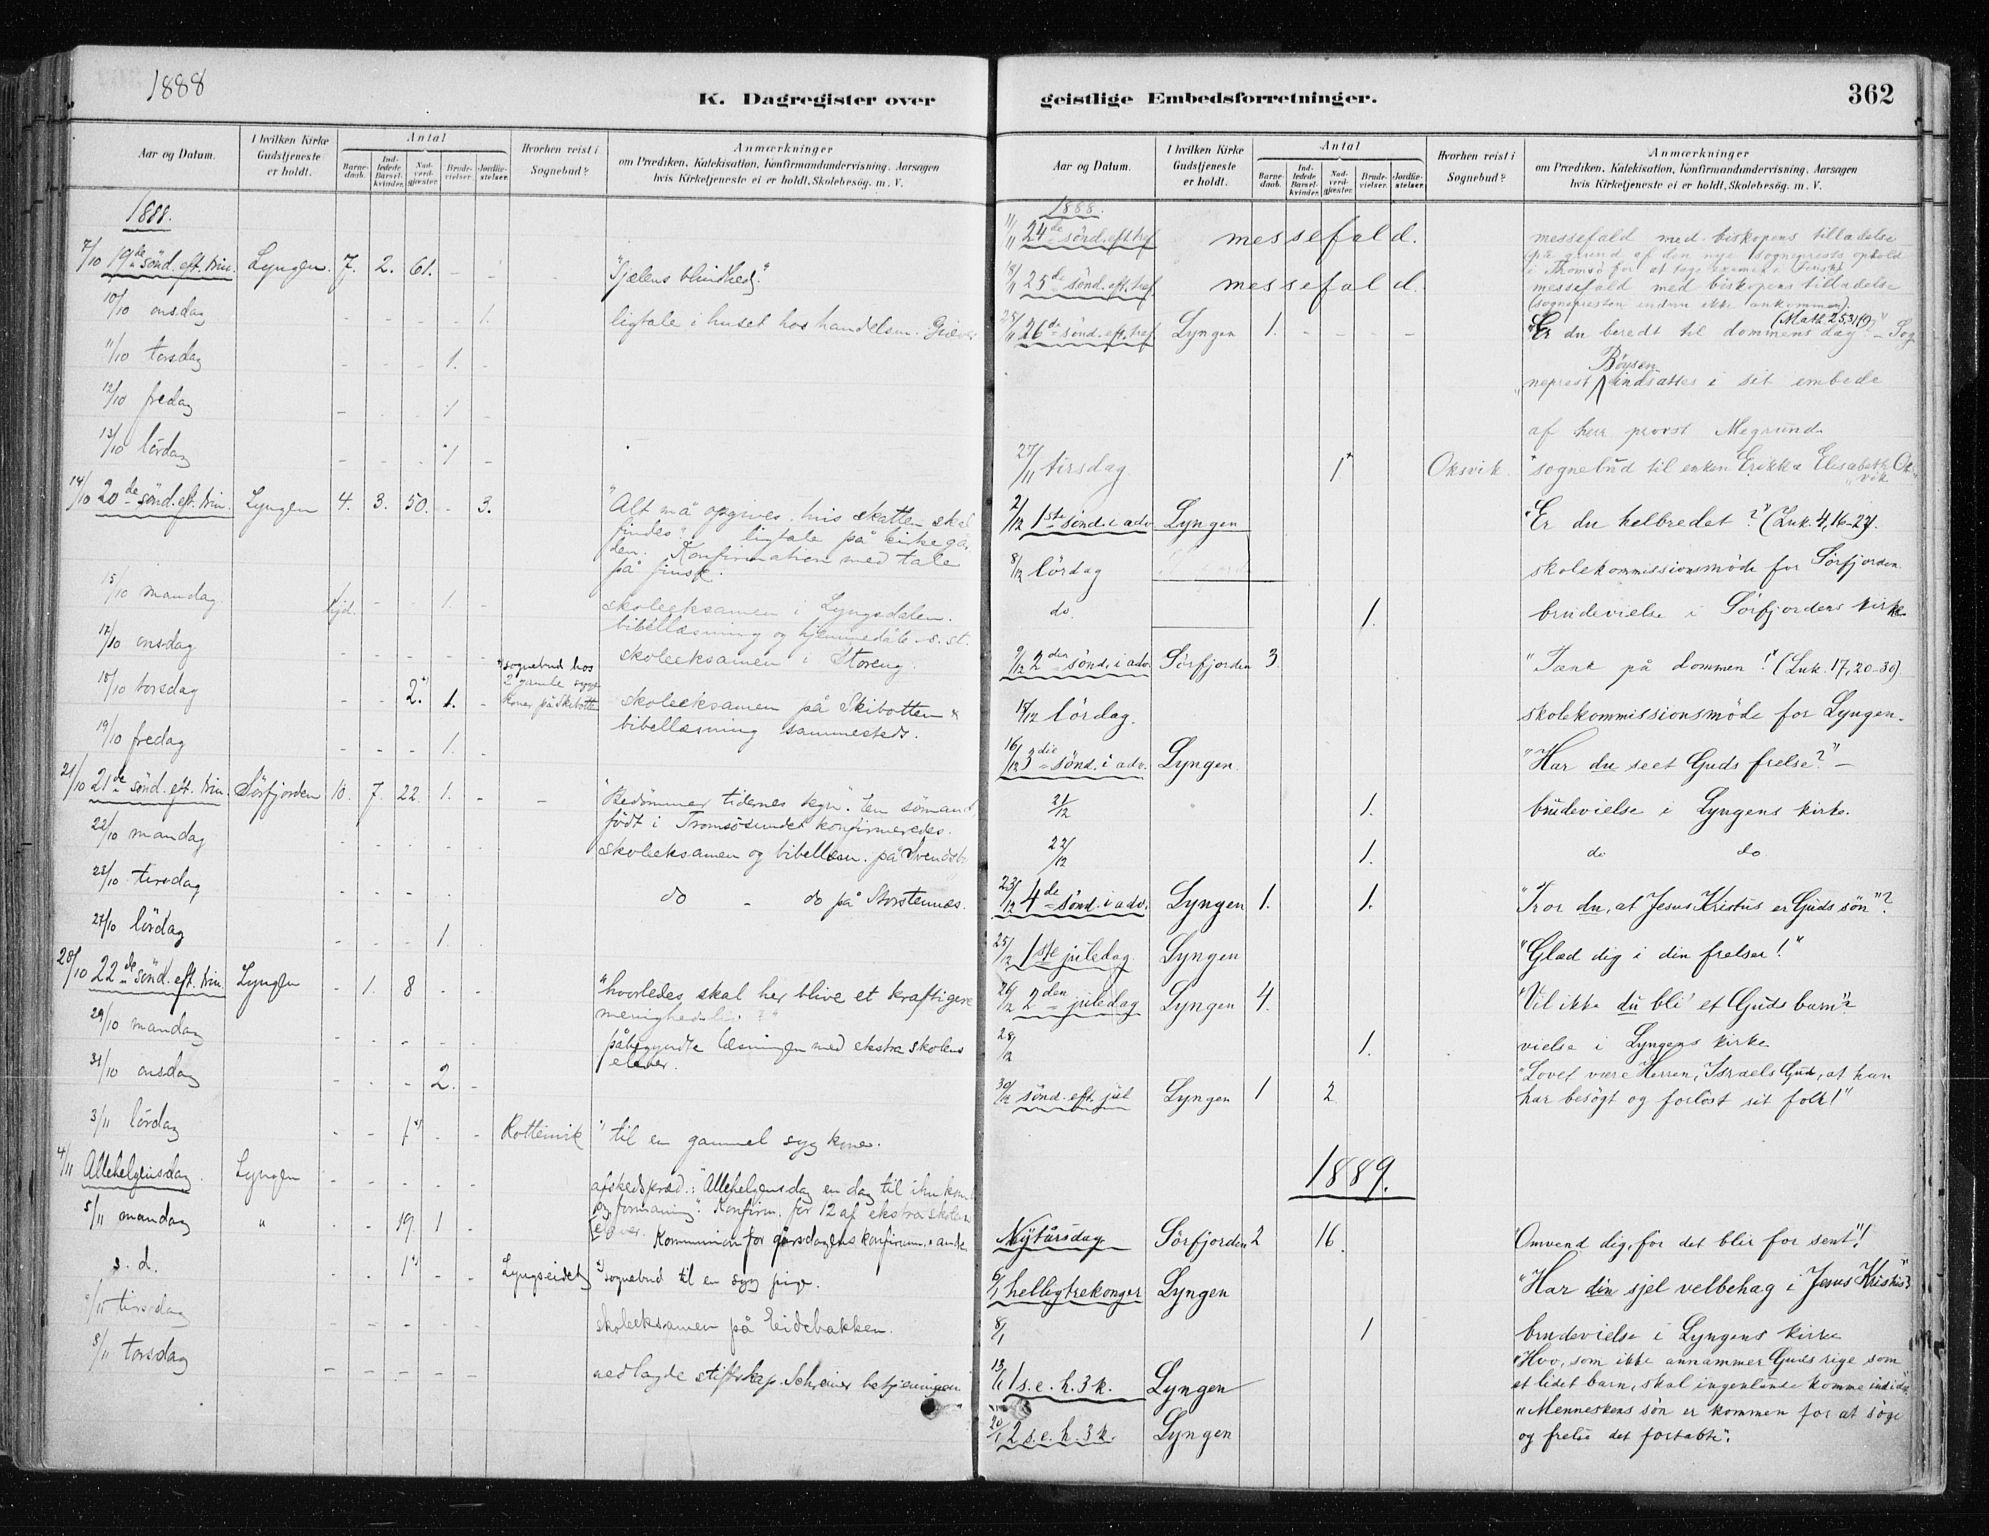 1888
K. Dagregister over
Aar og Datum.
I hvilken Kirke Gudstjeneste er holdt.
Antal
Barnedaab.
Indledede Barselkvinder.
Nadverdgjester.
Brudevielser.
Jordfæstelser.
Hvorhen reist i Sognebud?
Anmærkninger
om Prædiken, Katekisation, Konfirmandundervisning, Aarsagen
hvis Kirketjeneste ei er holdt, Skolebesøg. m. V.
1888.
7/10 19de sönd. eft. trin. Lyngen. 7. 2. 61. - - "Sjælens blindhed."
10/10 onsdag - - - - 1. ligtale i huset hos handelsm. Giæver
11/10 torsdag - - - 1. -
12/10 fredag - - - 1 -
13/10 lördag - - - 1 -
14/10 20de sönd. eft. trin. Lyngen 4. 3. 50. - 3. "Alt må opgives, hvis skatten skal
findes". ligtale på kirkegår
den. Konfirmation med tale
på finsk.
15/10 mandag hjd. - - 1. - skoleeksamen i Lyngsdalen.
bibellæsning og hjemmedåb s. st.
17/10 onsdag - - - - - skoleeksamen i Storeng.
18/10 torsdag - - 2. 1. - sognebud hos
2 gamle syge
koner på Skibotten
skoleeksamen på Skibotten &
bibellæsning sammesteds.
19/10 fredag - - - 1. -
21/10 21de sönd. eft. trin. Sörfjorden 10. 7. 22. 1. - - "Bedömmer tidernes tegn". En sömand
födt i Tromsösundet konfirmeredes.
22/10 mandag - - - - - skoleeksamen og bibellæsn. på Svendsb.
23/10 tirsdag - - - - - do - do på Storstennes.
27/10 lördag - - - 1. -
28/10 22de sönd. eft. trin. Lyngen - 1. 8 - - "hvorledes skal her blive et kraftigere
menighedsliv?"
29/10 mandag - - - - - påbegyndte læsningen med ekstraskolens
elever.
31/10 onsdag - - - 2. -
3/11 lördag - - 1 - - Rottenvik til en gammel syg kone.
4/11 Allehelgensdag. Lyngen - - - - - afskedspræd.: "Allehelgensdag en dag til ihukom-
og formaning". Konfirm. for 12 af ekstraskolens
elever.
5/11 mandag " - - 19. 1 - Kommunion for gårsdagens konfirm. & andre
s. d. - - 1 - - Lyngseidet sognebud til en syg pige.
6/11 tirsdag - - - - - skoleeksamen på Eidebakken.
8/11 torsdag - - - - - nedlagde stiftskap. Schreiner betjeningen
geistlige Embedsforretninger.
362
Aar og Datum.
I hvilken Kirke Gudstjeneste er holdt.
Antal
Barnedaab.
Indledede Barselkvinder.
Nadverdgjester.
Brudevielser.
Jordfæstelser.
Hvorhen reist i Sognebud?
Anmærkninger
om Prædiken, Katekisation, Konfirmandundervisning, Aarsagen
hvis Kirketjeneste ei er holdt, Skolebesøg. m. V.
1888.
11/11 24de sönd. eft. tref. messefald. messefald med biskopens tilladelse
(på grund af den nye sogneprests ophold
i Tromsö for at tage examen i finsk)
18/11 25de sönd. eft. tref. messefald. messefald med biskopens tilladelse
(sognepresten endnu ikke ankommen).
25/11 26de sönd. eft. tref. Lyngen 1. - - - - "Er du beredt til dommens dag?" (Math 25,31 ff) - Sog
neprest Böysen indsattes i sit embede
af herr provst Megrund.
27/11 tirsdag. 1 Oksvik. sognebud til enken Erikka Elisabeth Oks
vik
2/12 1ste sönd. i adv. Lyngen "Er du helbredet?" (Luk. 4,16-22).
8/12 lördag skolekommissionsmöde for Sörfjorden.
do. 1. brudevielse i Sörfjordens kirke
9/12 2den sönd. i adv. Sörfjorden 3. "Tænk på dommen!" (Luk. 17,20-30)
15/12 lördag. skolekommissionsmöde for Lyngen.
16/12 3die sönd. i adv. Lyngen. "Har du seet Guds frelse?" -
21/12 1. brudevielse i Lyngens kirke.
22/12 1. do do
23/12 4de sönd. i adv. Lyngen 1. 1. "Tror du, at Jesus Kristus er Guds sön"?
25/12 1ste juledag. Lyngen "Glæd dig i din frelser!"
26/12 2den juledag Lyngen 4. "Vil ikke du bli' et Guds barn"?
28/12 1. vielse i Lyngens kirke
30/12 sönd. eft. jul Lyngen 1 2. "Lovet være Herren, Israels Gud, at han
har besögt og forlöst sit folk!"
1889.
Nytårsdag Sörfjorden 2 16. "Omvend dig, för det blir for sent"!
6/1 helligtrekonger Lyngen "Har din sjel velbehag i Jesus Kristus"?
8/1 1 brudevielse i Lyngens kirke
13/1 1 s. e. h. 3 k. Lyngen "Hvo, som ikke annammer Guds rige som
et lidet barn, skal ingenlunde komme ind i det
20/1 2 s. e. h. 3 k. Lyngen "Menneskens sön er kommen for at söge
og frelse det fortabte".